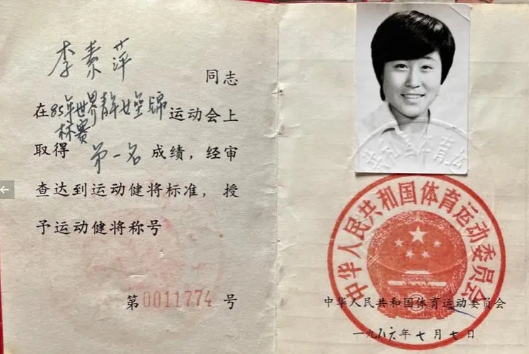 李素萍
同志
在85年世界青年女垒锦
标赛运动会上
取得 第一名 成绩,经审
查达到运动健将标准,授
予运动健将称号
第0011774号
中华人民共和国体育运动委员会
中华人民共和国体育运动委员会
一九八六年七月七日